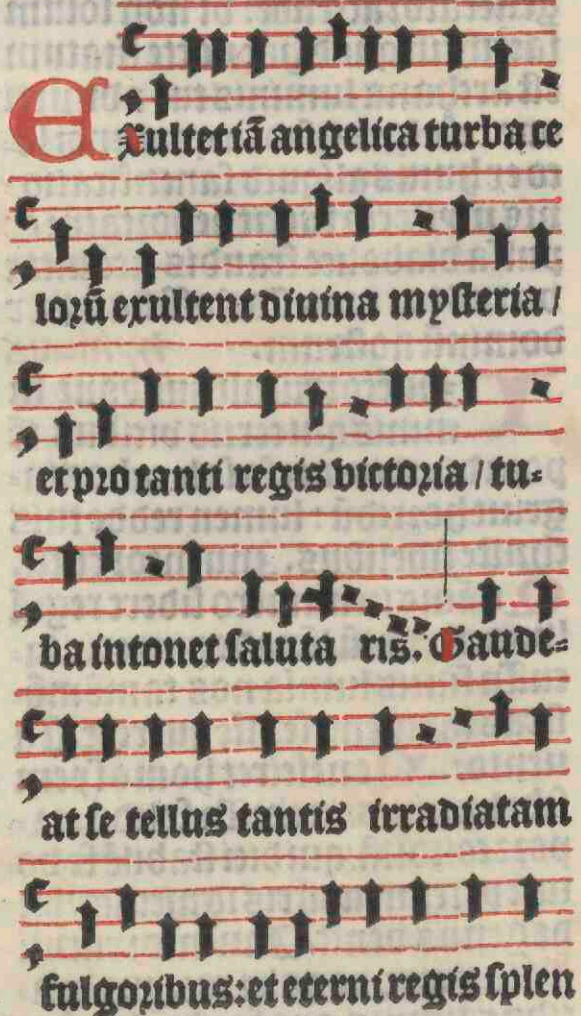 Exultet iā angelica turba ce
lorū exultent diuina mysteria /
et pro tanti regis victoria / tu-
ba intonet saluta ris. Gaude-
at se tellus tantis irradiatam
fulgoribus: et eterni regis splen